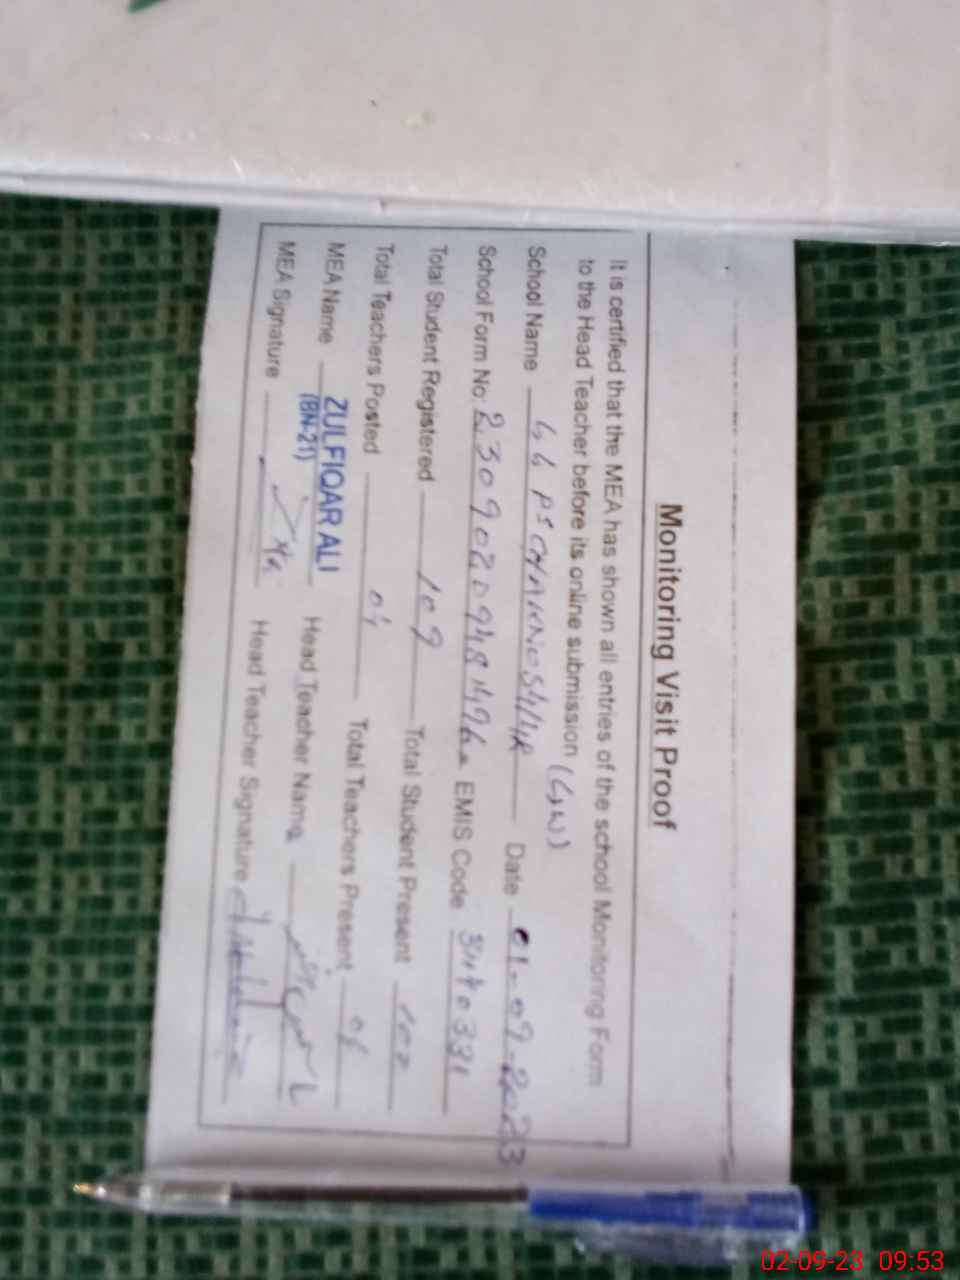 Monitoring Visit Proof
It is certified that the MEA has shown all entries of the school Monitoring Form
to the Head Teacher before its online submission (GW)
School Name Date 01-09-2023
School Form No: EMIS Code
Total Student Registered 109 Total Student Present 102
Total Teachers Posted 04 Total Teachers Present 04
MEA Name ZULFIQAR ALI Head Teacher Name
(BN-21)
MEA Signature Head Teacher Signature
02-09-23 09:53